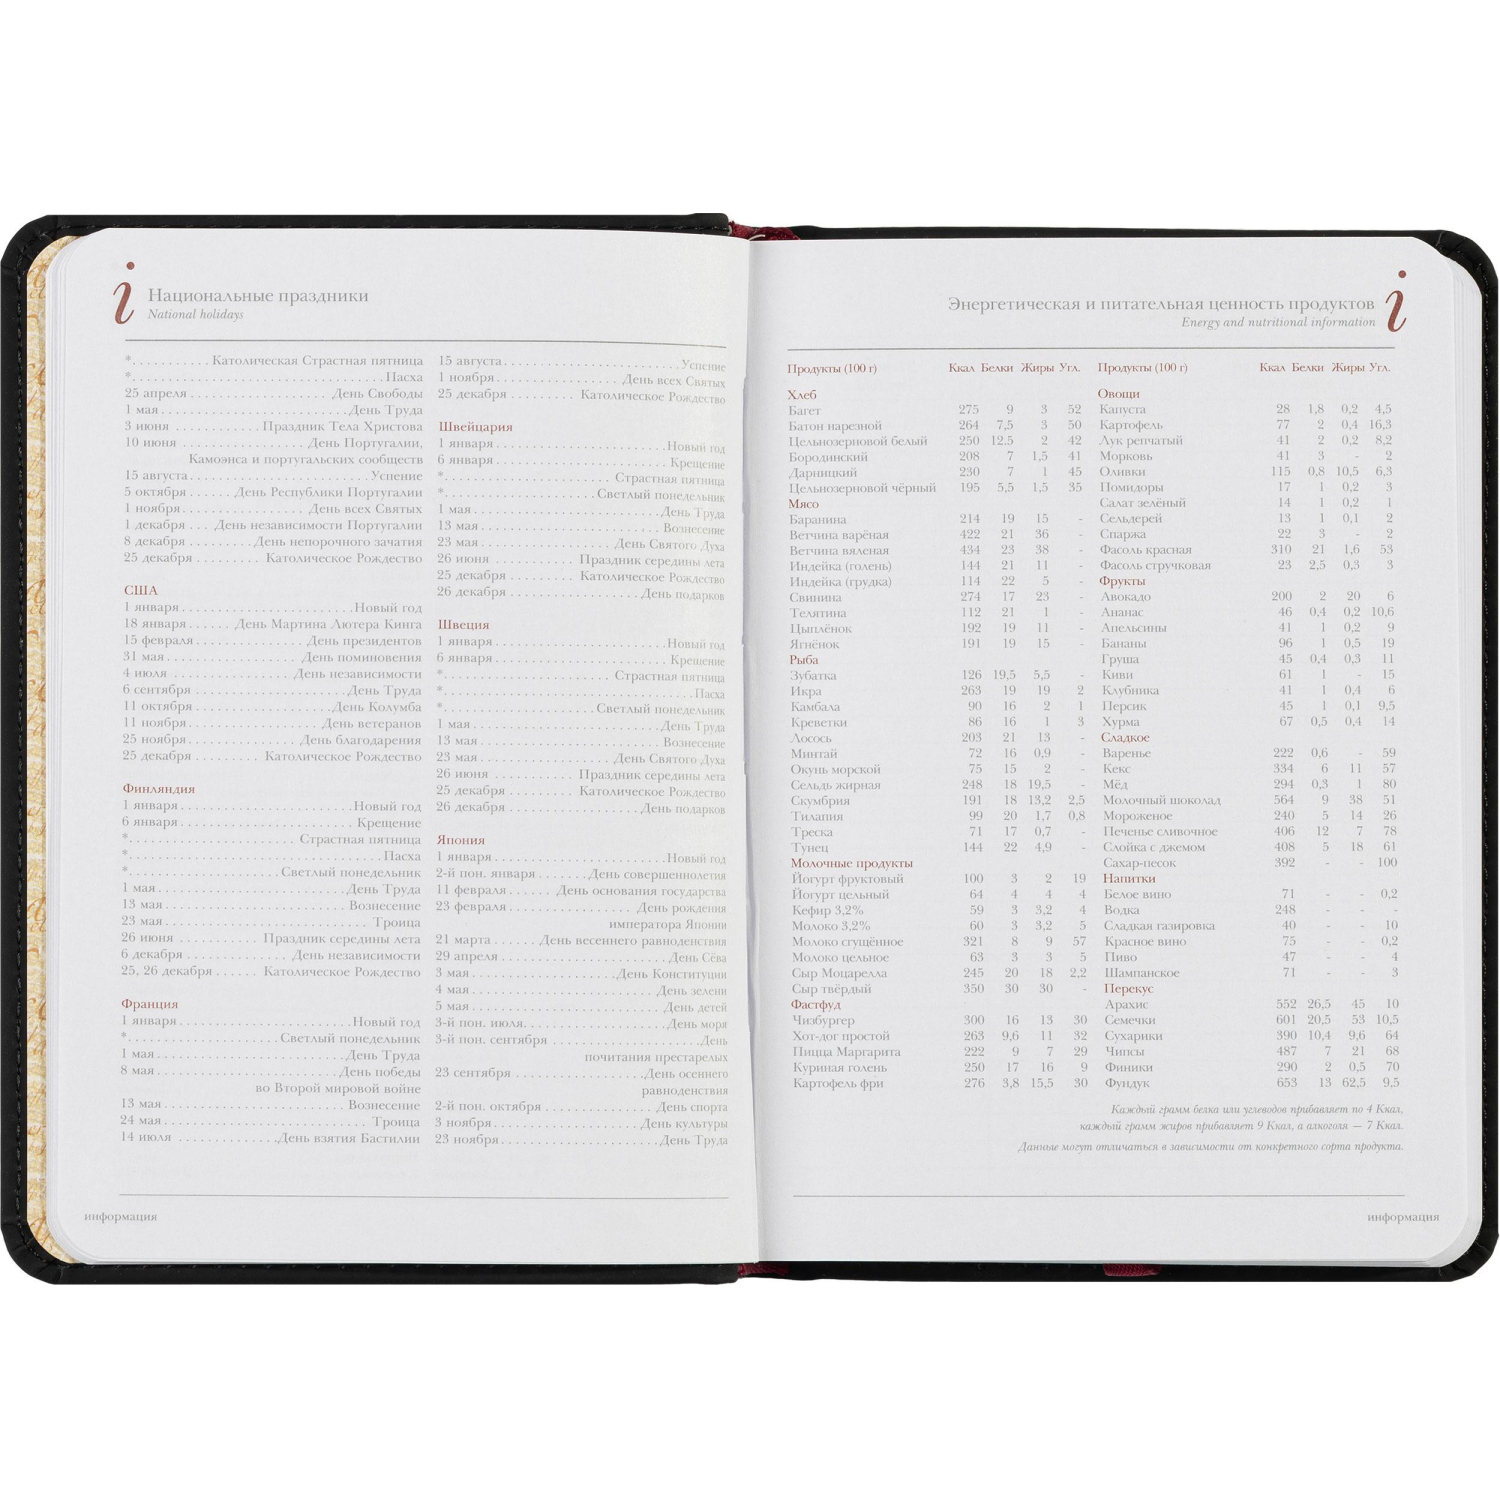 i
Национальные праздники
National holidays
*. . . . . . . . . . Католическая Страстная пятница
*. . . . . . . . . . Пасха
25 апреля. . . . . . . . . . День Свободы
1 мая. . . . . . . . . . День Труда
3 июня . . . . . . . . . . Праздник Тела Христова
10 июня . . . . . . . . . . День Португалии,
Камоэнса и португальских сообществ
15 августа. . . . . . . . . . Успение
5 октября . . . . . . День Республики Португалии
1 ноября. . . . . . . . . . День всех Святых
1 декабря . . . День независимости Португалии
8 декабря . . . . . . . . День непорочного зачатия
25 декабря. . . . . . . . . Католическое Рождество
США
1 января. . . . . . . . . . Новый год
18 января. . . . . . День Мартина Лютера Кинга
15 февраля. . . . . . . . . . День президентов
31 мая. . . . . . . . . . День поминовения
4 июля . . . . . . . . . . День независимости
6 сентября . . . . . . . . . . День Труда
11 октября. . . . . . . . . . День Колумба
11 ноября. . . . . . . . . . День ветеранов
25 ноября. . . . . . . . . . День благодарения
25 декабря . . . . . . . . . Католическое Рождество
Финляндия
1 января. . . . . . . . . . Новый год
6 января. . . . . . . . . . Крещение
*. . . . . . . . . . Страстная пятница
*. . . . . . . . . . Пасха
*. . . . . . . . . . Светлый понедельник
1 мая. . . . . . . . . . День Труда
13 мая. . . . . . . . . . Вознесение
23 мая. . . . . . . . . . Троица
26 июня . . . . . . . . . . Праздник середины лета
6 декабря . . . . . . . . . . День независимости
25, 26 декабря . . . . . . Католическое Рождество
Франция
1 января. . . . . . . . . . Новый год
*. . . . . . . . . . Светлый понедельник
1 мая. . . . . . . . . . День Труда
8 мая. . . . . . . . . . День победы
во Второй мировой войне
13 мая. . . . . . . . . . Вознесение
24 мая. . . . . . . . . . Троица
14 июля . . . . . . . . . . День взятия Бастилии
15 августа. . . . . . . . . . Успение
1 ноября. . . . . . . . . . День всех Святых
25 декабря. . . . . . . . . Католическое Рождество
Швейцария
1 января . . . . . . . . . . Новый год
6 января . . . . . . . . . . Крещение
*. . . . . . . . . . Страстная пятница
*. . . . . . . . . . Светлый понедельник
1 мая . . . . . . . . . . День Труда
13 мая. . . . . . . . . . Вознесение
23 мая. . . . . . . . . . День Святого Духа
26 июня . . . . . . . . . . Праздник середины лета
25 декабря . . . . . . . . . Католическое Рождество
26 декабря. . . . . . . . . . День подарков
Швеция
1 января. . . . . . . . . . Новый год
6 января. . . . . . . . . . Крещение
*. . . . . . . . . . Страстная пятница
*. . . . . . . . . . Пасха
*. . . . . . . . . . Светлый понедельник
1 мая . . . . . . . . . . День Труда
13 мая. . . . . . . . . . Вознесение
23 мая. . . . . . . . . . День Святого Духа
26 июня . . . . . . . . . . Праздник середины лета
25 декабря . . . . . . . . . Католическое Рождество
26 декабря . . . . . . . . . . День подарков
Япония
1 января . . . . . . . . . . Новый год
2-й пон. января . . . . . . . День совершеннолетия
11 февраля. . . . . . День основания государства
23 февраля. . . . . . . . . . День рождения
императора Японии
21 марта . . . . . . День весеннего равноденствия
29 апреля . . . . . . . . . . День Сёва
3 мая . . . . . . . . . . День Конституции
4 мая . . . . . . . . . . День зелени
5 мая . . . . . . . . . . День детей
3-й пон. июля. . . . . . . . . . День моря
3-й пон. сентября . . . . . . . . . . День
почитания престарелых
23 сентября . . . . . . . . . . День осеннего
равноденствия
2-й пон. октября . . . . . . . . . . День спорта
3 ноября . . . . . . . . . . День культуры
23 ноября. . . . . . . . . . День Труда
информация
Энергетическая и питательная ценность продуктов
Energy and nutritional information
i
Продукты (100 г) Ккал Белки Жиры Угл.
Хлеб
Багет 275 9 3 52
Батон нарезной 264 7,5 3 50
Цельнозерновой белый 250 12.5 2 42
Бородинский 208 7 1,5 41
Дарницкий 230 7 1 45
Цельнозерновой чёрный 195 5,5 1,5 35
Мясо
Баранина 214 19 15 -
Ветчина варёная 422 21 36 -
Ветчина вяленая 434 23 38 -
Индейка (голень) 144 21 11 -
Индейка (грудка) 114 22 5 -
Свинина 274 17 23 -
Телятина 112 21 1 -
Цыплёнок 192 19 11 -
Ягнёнок 191 19 15 -
Рыба
Зубатка 126 19,5 5,5 -
Икра 263 19 19 2
Камбала 90 16 2 1
Креветки 86 16 1 3
Лосось 203 21 13 -
Минтай 72 16 0,9 -
Окунь морской 75 15 2 -
Сельдь жирная 248 18 19,5 -
Скумбрия 191 18 13,2 2,5
Тилапия 99 20 1,7 0,8
Треска 71 17 0,7 -
Тунец 144 22 4,9 -
Молочные продукты
Йогурт фруктовый 100 3 2 19
Йогурт цельный 64 4 4 4
Кефир 3,2% 59 3 3,2 4
Молоко 3,2% 60 3 3,2 5
Молоко сгущённое 321 8 9 57
Молоко цельное 63 3 3 5
Сыр Моцарелла 245 20 18 2,2
Сыр твёрдый 350 30 30 -
Фастфуд
Чизбургер 300 16 13 30
Хот-дог простой 263 9,6 11 32
Пицца Маргарита 222 9 7 29
Куриная голень 250 17 16 9
Картофель фри 276 3,8 15,5 30
Продукты (100 г) Ккал Белки Жиры Угл.
Овощи
Капуста 28 1,8 0,2 4,5
Картофель 77 2 0,4 16,3
Лук репчатый 41 2 0,2 8,2
Морковь 41 3 - 2
Оливки 115 0,8 10,5 6,3
Помидоры 17 1 0,2 3
Салат зелёный 14 1 0,2 1
Сельдерей 13 1 0,1 2
Спаржа 22 3 - 2
Фасоль красная 310 21 1,6 53
Фасоль стручковая 23 2,5 0,3 3
Фрукты
Авокадо 200 2 20 6
Ананас 46 0,4 0,2 10,6
Апельсины 41 1 0,2 9
Бананы 96 1 0,5 19
Груша 45 0,4 0,3 11
Киви 61 1 - 15
Клубника 41 1 0,4 6
Персик 45 1 0,1 9,5
Хурма 67 0,5 0,4 14
Сладкое
Варенье 222 0,6 - 59
Кекс 334 6 11 57
Мёд 294 0,3 1 80
Молочный шоколад 564 9 38 51
Мороженое 240 5 14 26
Печенье сливочное 406 12 7 78
Слойка с джемом 408 5 18 61
Сахар-песок 392 - - 100
Напитки
Белое вино 71 - - 0,2
Водка 248 - - -
Сладкая газировка 40 - - 10
Красное вино 75 - - 0,2
Пиво 47 - - 4
Шампанское 71 - - 3
Перекус
Арахис 552 26,5 45 10
Семечки 601 20,5 53 10,5
Сухарики 390 10,4 9,6 64
Чипсы 487 7 21 68
Финики 290 2 0,5 70
Фундук 653 13 62,5 9,5
Каждый грамм белка или углеводов прибавляет по 4 Ккал,
каждый грамм жиров прибавляет 9 Ккал, а алкоголя — 7 Ккал.
Данные могут отличаться в зависимости от конкретного сорта продукта.
информация